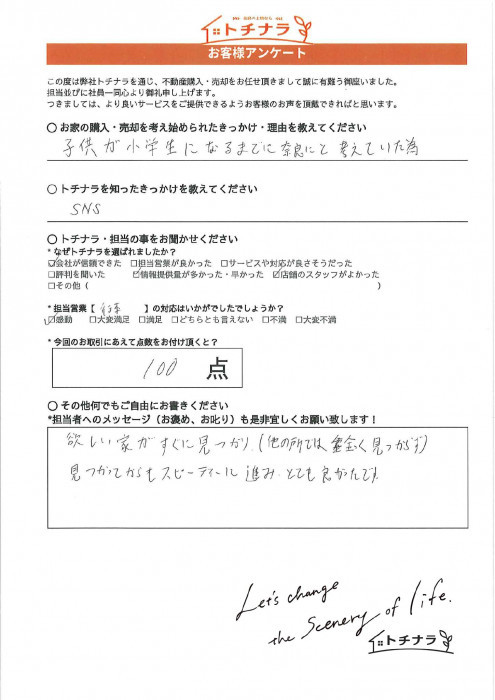 トチナラ
お客様アンケート
この度は弊社トチナラを通じ、不動産購入・売却をお任せ頂きまして誠に有難う御座いました。
担当並びに社員一同心より御礼申し上げます。
つきましては、より良いサービスをご提供できるようお客様のお声を頂戴できればと思います。
〇 お家の購入・売却を考え始められたきっかけ・理由を教えてください
子供が小学生になるまでに奈良にと考えていた為
〇 トチナラを知ったきっかけを教えてください
SNS
〇 トチナラ・担当の事をお聞かせください
* なぜトチナラを選ばれましたか？
☑会社が信頼できた □担当営業が良かった □サービスや対応が良さそうだった
□評判を聞いた ☑情報提供量が多かった・早かった ☑店舗のスタッフがよかった
□その他（ ）
* 担当営業【 】の対応はいかがでしたでしょうか？
☑感動 □大変満足 □満足 □どちらとも言えない □不満 □大変不満
* 今回のお取引にあえて点数をお付け頂くと？
100 点
〇 その他何でもご自由にお書きください
*担当者へのメッセージ（お褒め、お叱り）も是非宜しくお願い致します！
欲しい家がすぐに見つかり、(他の所では全く見つからず)
見つかってからもスピーディーに進み とても良かったです
Let's change
the Scenery of life.
トチナラ